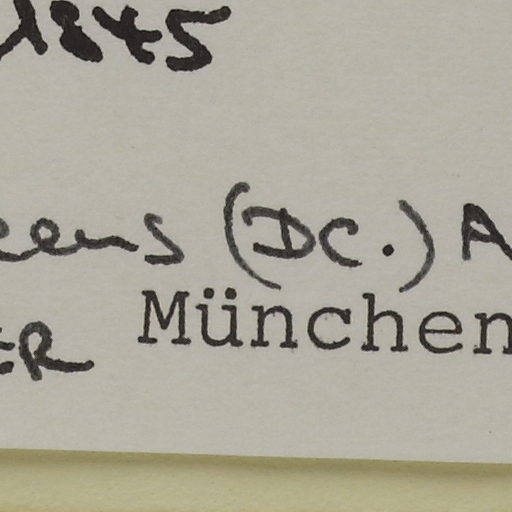 1845
eens (DC.) A
ER München